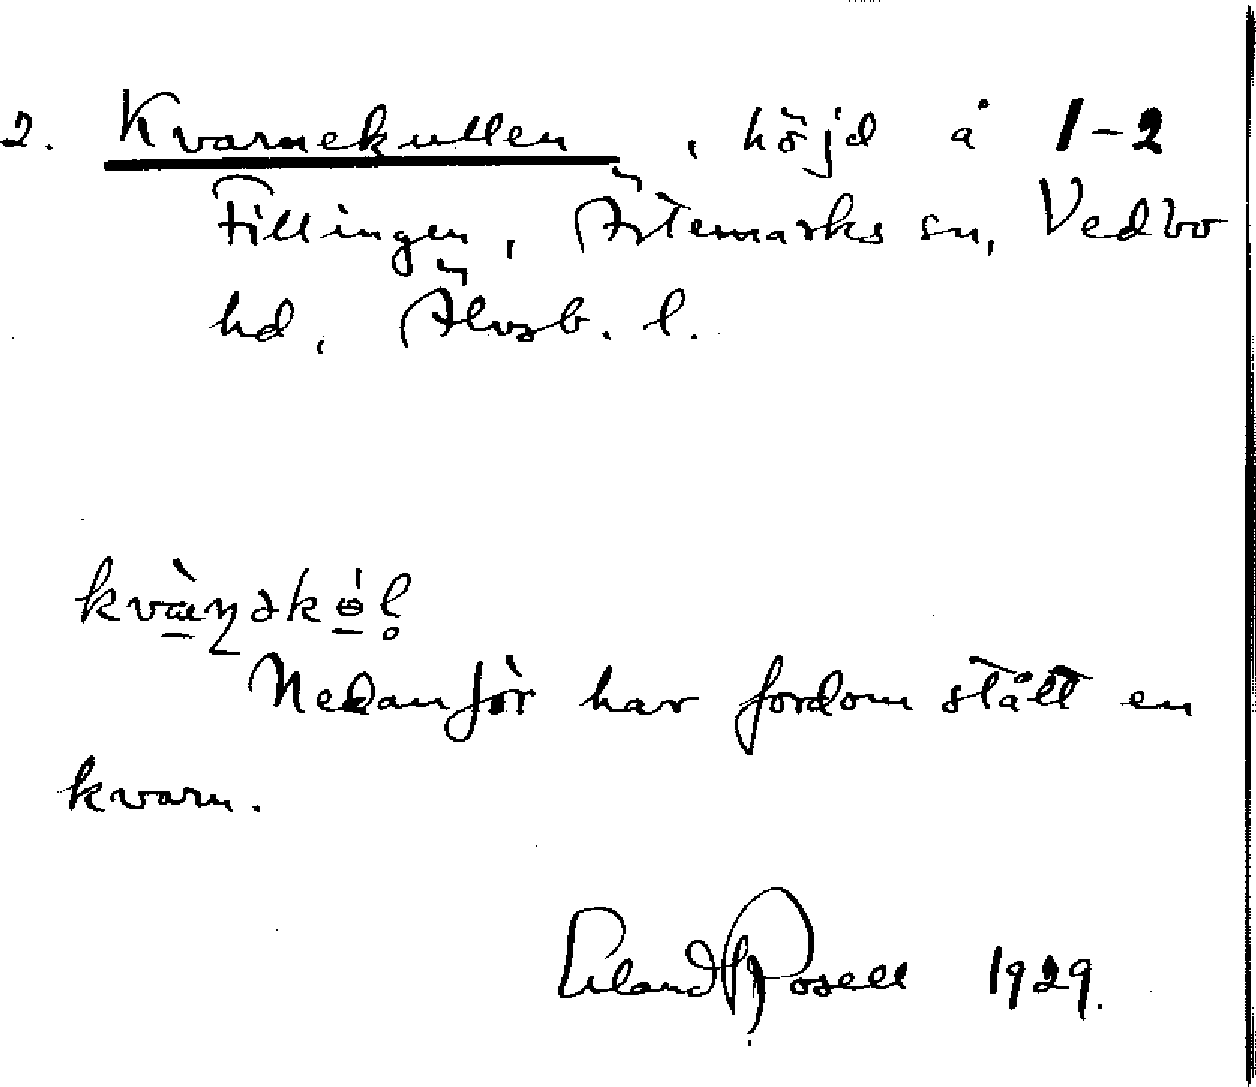 2. Kvarnekullen, höjd å 1-2
Tillingen, Ärtemarks sn, Vedbo
hd, Älvsb. l.
Nedanför har fordom stått en
kvarn.
Erland Rosell 1929.